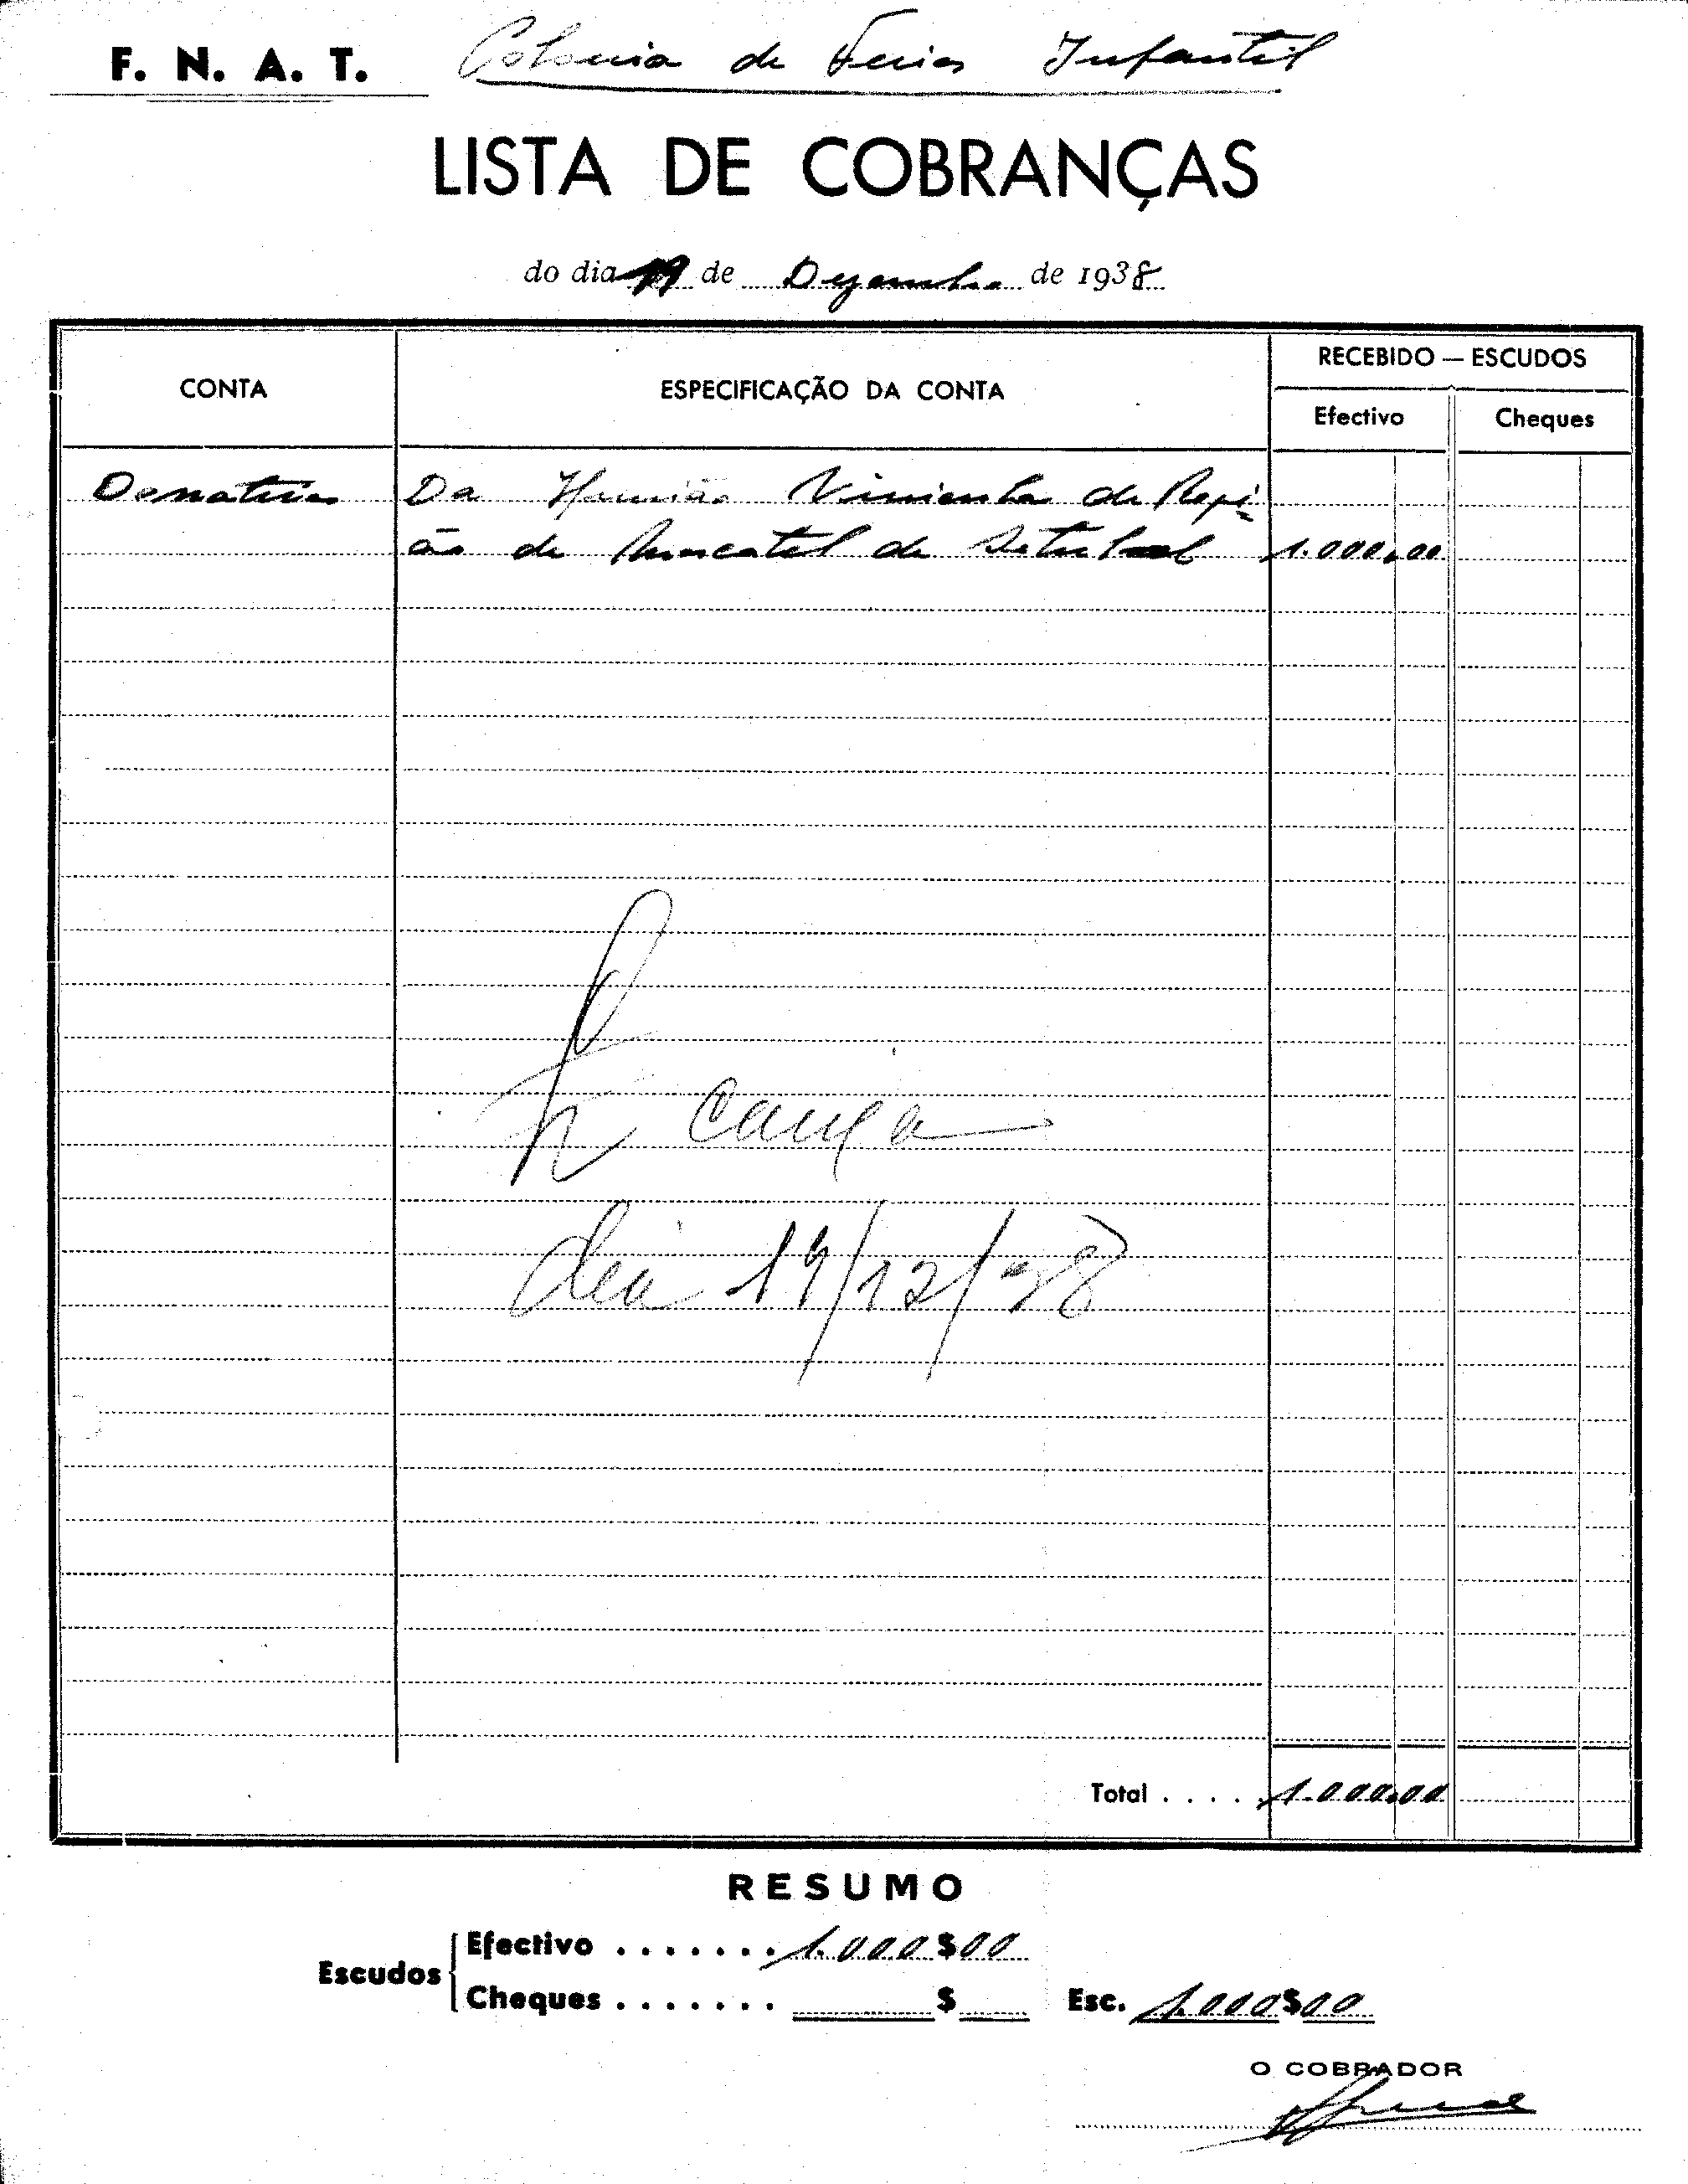 F. N. A. T. Colonia de Ferias Infantil
LISTA DE COBRANÇAS
do dia 19 de Dezembro de 1938
CONTA ESPECIFICAÇÃO DA CONTA RECEBIDO — ESCUDOS
Efectivo Cheques
Donativos Da União Vinicola da Regi
ão de Moscatel de Setubal 1.000,00
dia 19/12/38
Total . . . . 1.000,00
RESUMO
Escudos Efectivo . . . . . . . 1.000$00
Cheques . . . . . . . $ Esc. 1.000$00
O COBRADOR